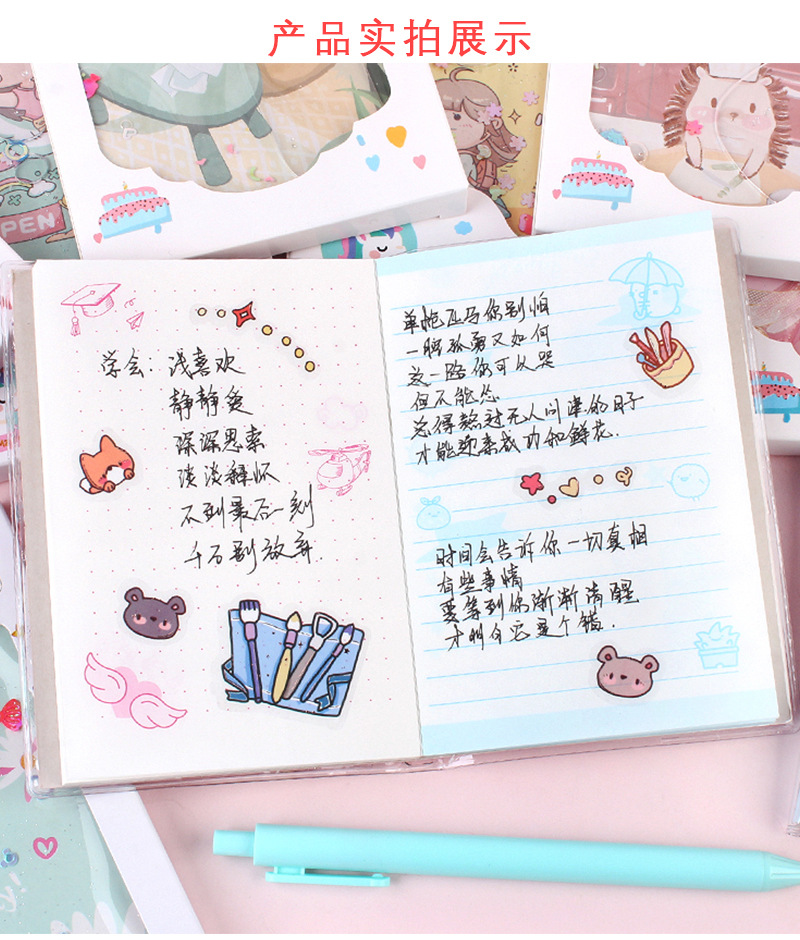 产品实拍展示
OPEN
学会：浅喜欢
静静爱
深深思索
淡淡释怀
不到最后一刻
千万别放弃.
单枪匹马你别怕
一腔孤勇又如何
这一路你可以哭
但不能怂
总得熬过无人问津的日子
才能迎来成功和鲜花.
时间会告诉你一切真相
有些事情
要等到你渐渐清醒
才明白它是个错.